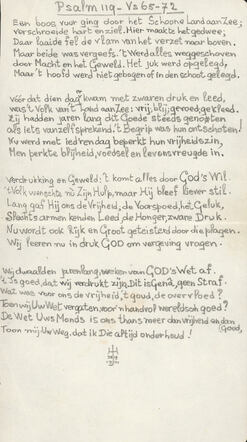 Psalm 119 - Vs 65-72
Een boos vuur ging door het Schoone Land aan Zee;
Verschroeide hart en ziel. Hier maakt's het gedwee;
Daar laaide fel de vlam van het verzet naar boven.
Maar beide was vergeefs, 't Werd alles weggeschoven
door Macht en het Geweld. Het juk werd opgelegd,
Maar 't hoofd werd niet gebogen of in den schoot gelegd.
Vóór dat dien dag kwam met zwaren druk en leed,
was 't Volk van 't Land aan Zee: vrij, blij, gevoed, gekleed.
Zij hadden jaren lang dit Goede steeds genoten
als iets vanzelfsprekend. 't Begrip was hun ontschoten!
Nu werd met iedren dag beperkt hun vrijheidszin,
Men perkte blijheid, voedsel en levensvreugde in.
Verdrukking en Geweld; 't komt alles door GOD's Wil.
't Volk wenschte nu Zijn Hulp, maar Hij bleef liever stil.
Lang gaf Hij ons de Vrijheid, de Voorspoed, het Geluk,
Slechts armen kenden Leed, de Honger, zware Druk.
Nu wordt ook Rijk en Groot geteisterd door die plagen.
Wij leeren nu in druk GOD om vergeving vragen.
Wij dwaalden jarenlang, weken van GOD's Wet af.
't Is goed, dat wij verdrukt zijn, Dit is Genâ, geen Straf.
Wat was voor ons de vrijheid, 't goud, de overvloed?
Toen wij Uw Wet vergaten, voor 'n handvol wereldsch goed?
De Wet Uws Monds is ons thans meer dan vrijheid en dan
(Goud,
Toon mij Uw Weg, dat ik Die altijd onderhoud!